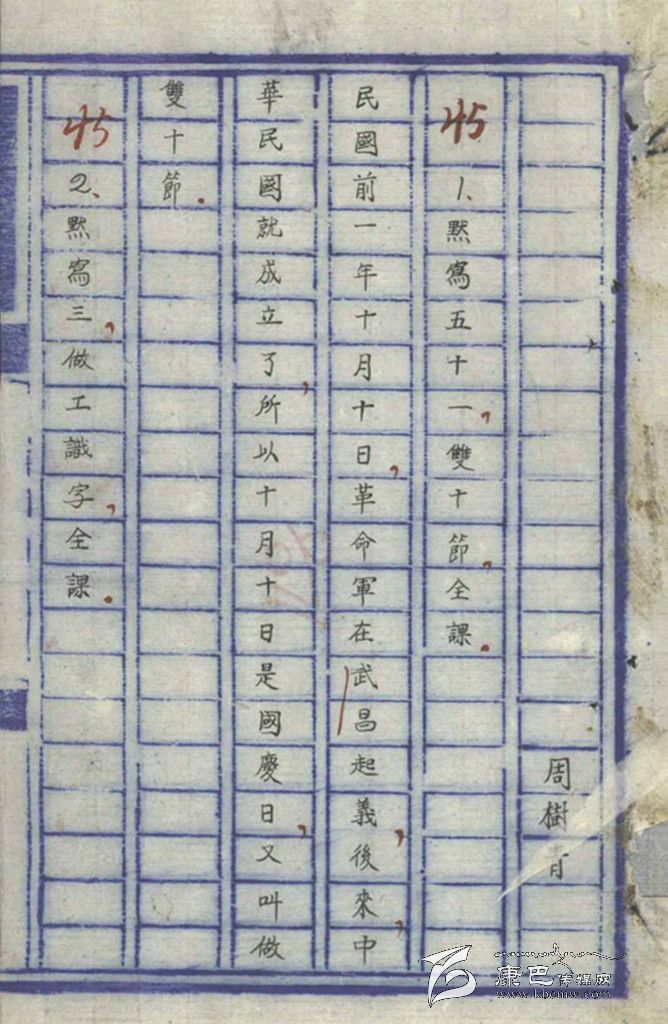 周樹青
45 1、默寫五十一，雙十節，全課。
民國前一年十月十日，革命軍在武昌起義，後來，中
華民國就成立了，所以十月十日是國慶日，又叫做
雙十節。
45 2、默寫三，做工識字，全課。
康巴传媒网
www.kbcmw.com